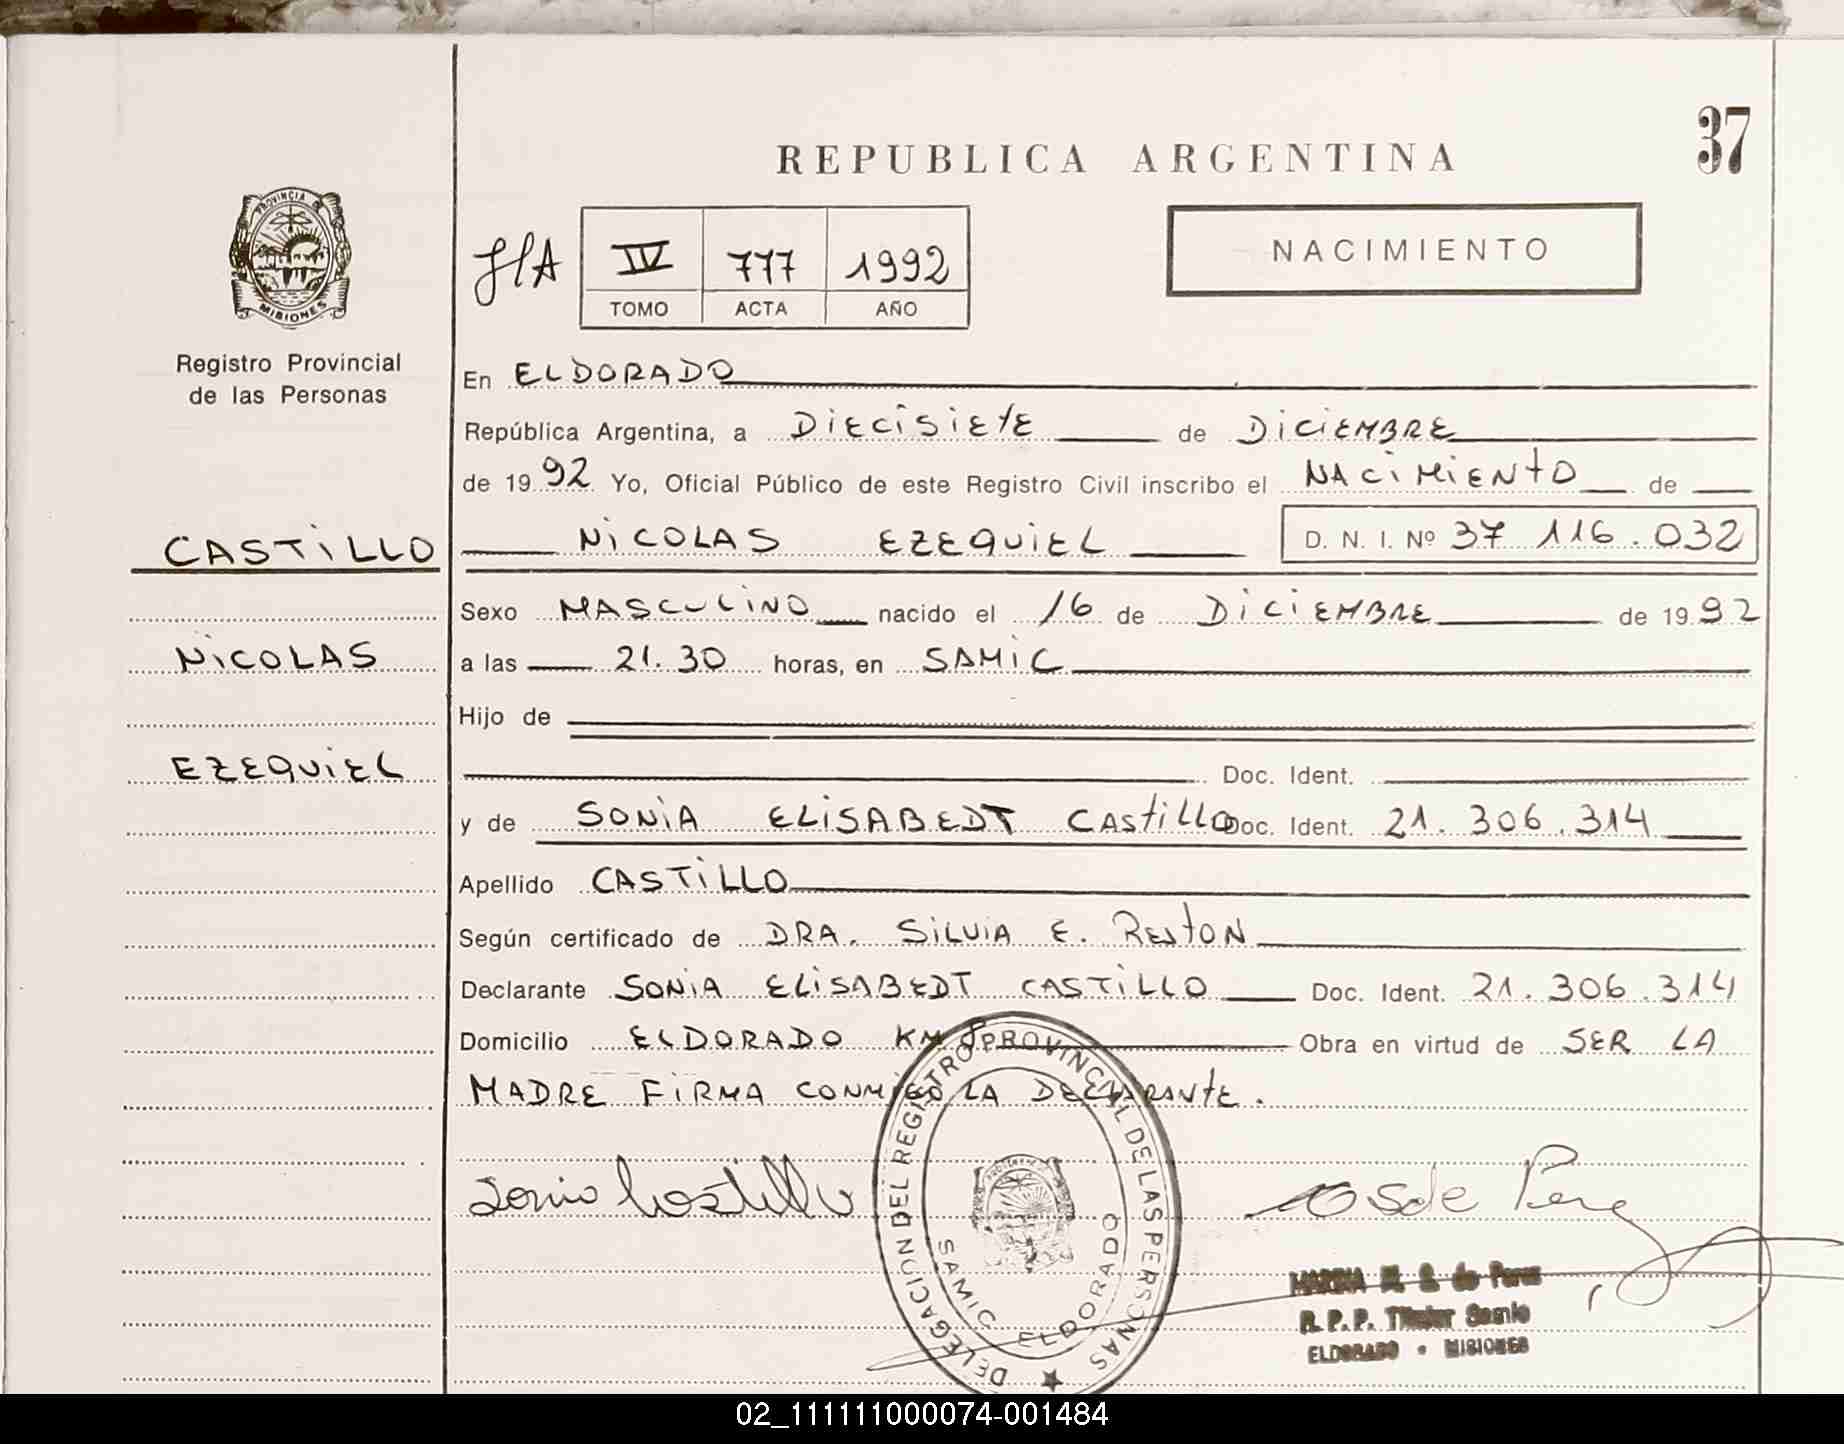 37
REPUBLICA ARGENTINA
PROVINCIA
MISIONES
Registro Provincial
de las Personas
IV 777 1992
TOMO ACTA AÑO
NACIMIENTO
En ELDORADO
República Argentina, a DIECISIETE de DICIEMBRE
de 1992 Yo, Oficial Público de este Registro Civil inscribo el NACIMIENTO de
CASTILLO
NICOLAS EZEQUIEL D. N. I. Nº 37 116.032
Sexo MASCULINO nacido el 16 de DICIEMBRE de 1992
NICOLAS
a las 21.30 horas, en SAMIC
Hijo de
EZEQUIEL
Doc. Ident.
y de SONIA ELISABEDT CASTILLO Doc. Ident. 21.306.314
Apellido CASTILLO
Según certificado de DRA. SILVIA E. RESTON
Declarante SONIA ELISABEDT CASTILLO Doc. Ident. 21.306.314
Domicilio ELDORADO KM 8 Obra en virtud de SER LA
MADRE FIRMA CONMIGO LA DECLARANTE.
Sonia Castillo
DELEGACION DEL REGISTRO PROVINCIAL DE LAS PERSONAS
SAMIC ELDORADO
de Perez
R.P.P. Titular Samic
ELDORADO - MISIONES
02_111111000074-001484